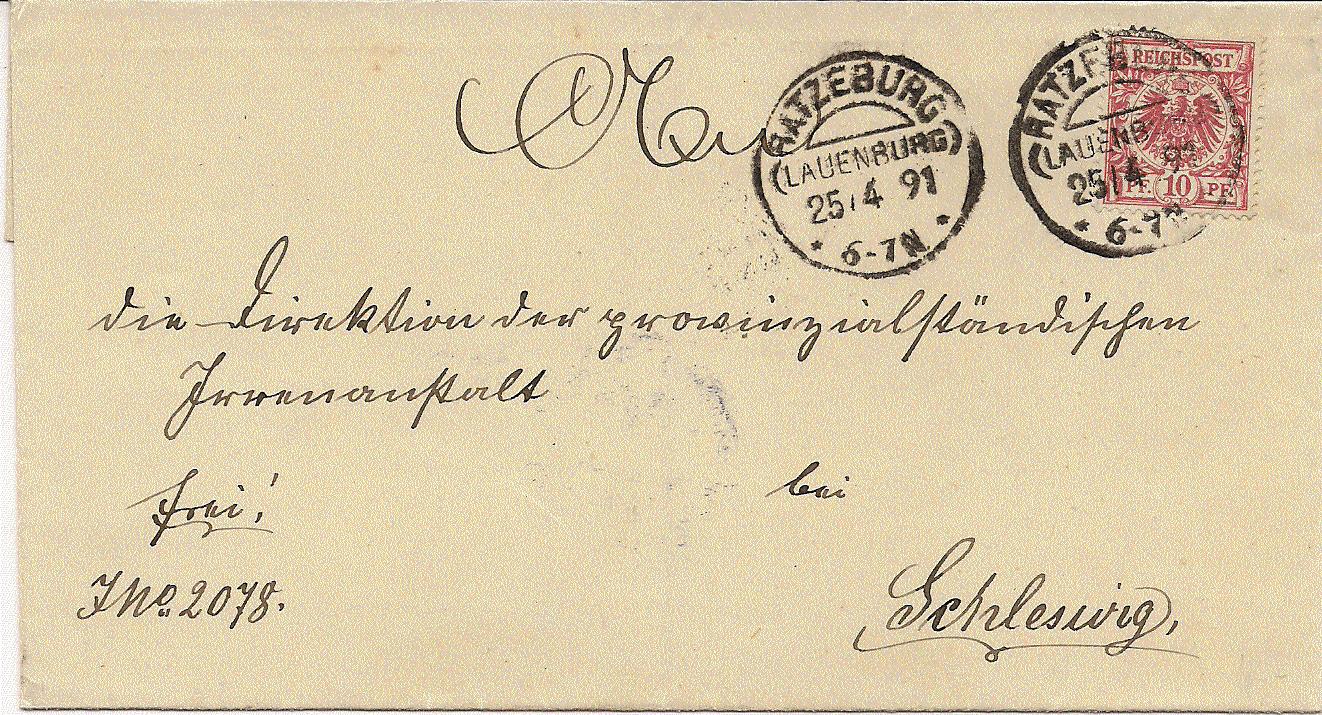 An
RATZEBURG
(LAUENBURG)
25/4 91
* 6-7N *
RATZEB
(LAUENB
25/4 91
* 6-7N
REICHSPOST
PF. 10 PF.
die Direktion der provinzialständischen
Irrenanstalt
frei!
bei
JNo. 2078.
Schleswig,